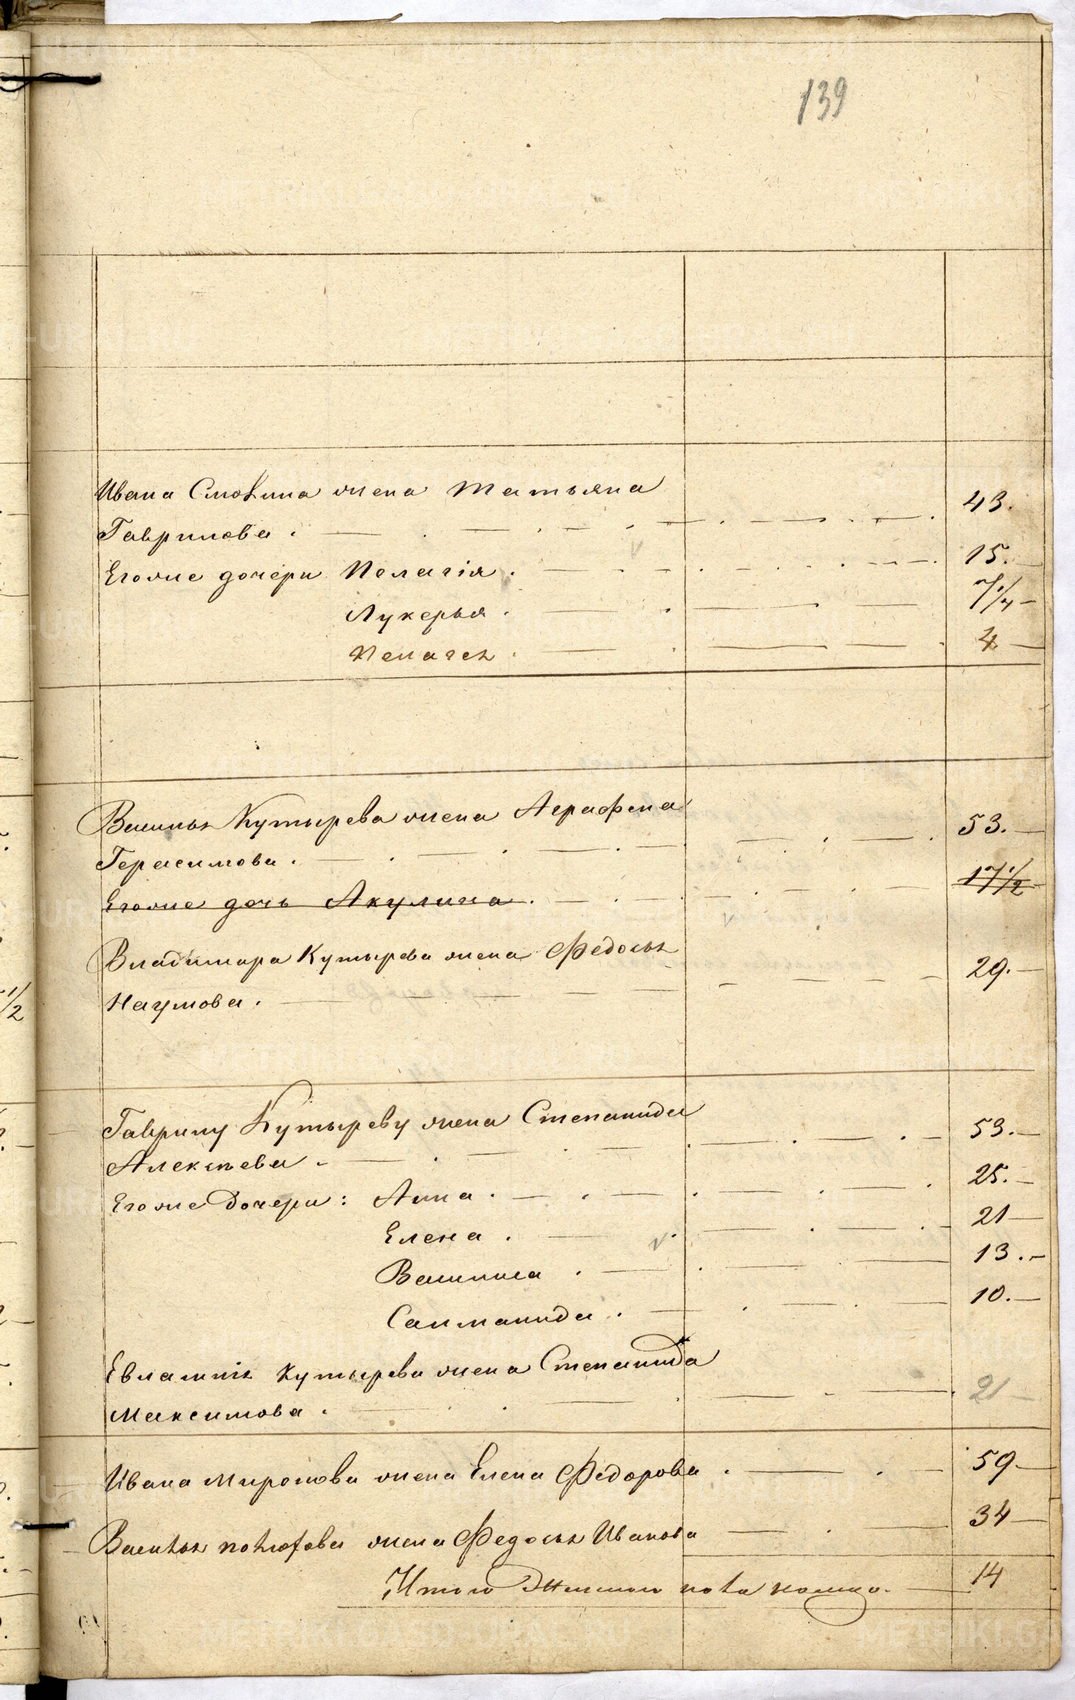 139
Ивана Смокина жена Татьяна 43.
Гаврилова.
Егоже дочери Пелагія. 15.
Лукерья. 7 1/4
Пелагея. 4
Василья Кутырева жена Аграфена 53.
Герасимова.
Егоже дочь Акулина. 17 1/2
Владимира Кутырева жена Федосья 29.
Наумова.
Гаврилу Кутыреву жена Степанида 53.
Алексѣева.
Егоже дочери: Анна. 25.
Елена. 21
Василиса. 13.
Саломанида. 10.
Евлампія Кутырева жена Степанида 21
Максимова.
Ивана Миронова жена Елена Федорова. 59
Василья жена Федосья Иванова 34
Итого Женска пола 14